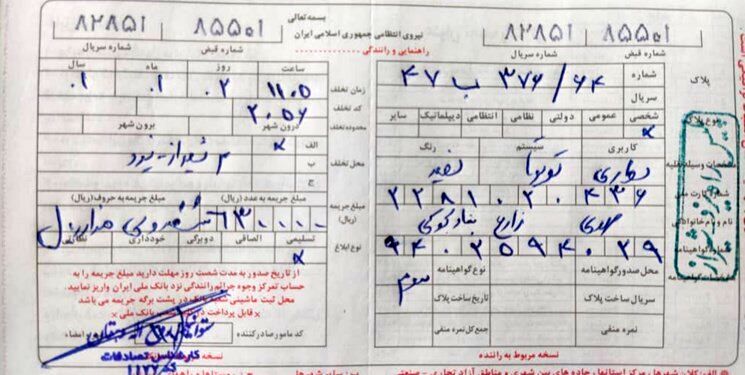 بسمه‌تعالی
۸۵۵۰۱
۸۲۸۵۱
نیروی انتظامی جمهوری اسلامی ایران
۸۵۵۰۱
۸۲۸۵۱
شماره قبض
شماره سریال
راهنمایی و رانندگی
شماره قبض
شماره سریال
پلاک
شماره
سریال
۴۷ ب ۳۷۶/۶۴
نوع پلاک
شخصی
عمومی
دولتی
نظامی
انتظامی
دیپلماتیک
سایر
مشخصات وسیله نقلیه
کاربری
سیستم
رنگ
سواری
تویوتا
سفید
شماره کارت ملی
۲۲۸۱۰۲۰۴۳۶
نام و نام خانوادگی
زارع
شماره گواهینامه
۹۴۰۲۵۹۴۰۲۹
محل صدور گواهینامه
نوع گواهینامه
سوم
سریال ساخت پلاک
تاریخ ساخت پلاک
نمره منفی
جمع کل نمره منفی
نسخه مربوط به راننده
زمان تخلف
ساعت
روز
ماه
سال
۱۱:۰۵
۰۲
۰۱
۰۱
کد تخلف
۲۰۵۶
محدوده تخلف
درون شهر
برون شهر
محل تخلف
الف
ب
ج
مبلغ جریمه (ریال)
مبلغ جریمه به عدد (ریال)
مبلغ جریمه به حروف (ریال)
نوع ابلاغ
تسلیمی
الصاقی
دوربرگی
خودداری
نظارتی
از تاریخ صدور به مدت شصت روز مهلت دارید مبلغ جریمه را به
حساب تمرکز وجوه جرائم رانندگی نزد بانک ملی ایران واریز نمایید.
محل ثبت ماشینی شعبه بانک در پشت برگه جریمه می باشد
کد مامور صادرکننده
امضاء
کارشناس تصادفات
نسخه مربوط به راننده